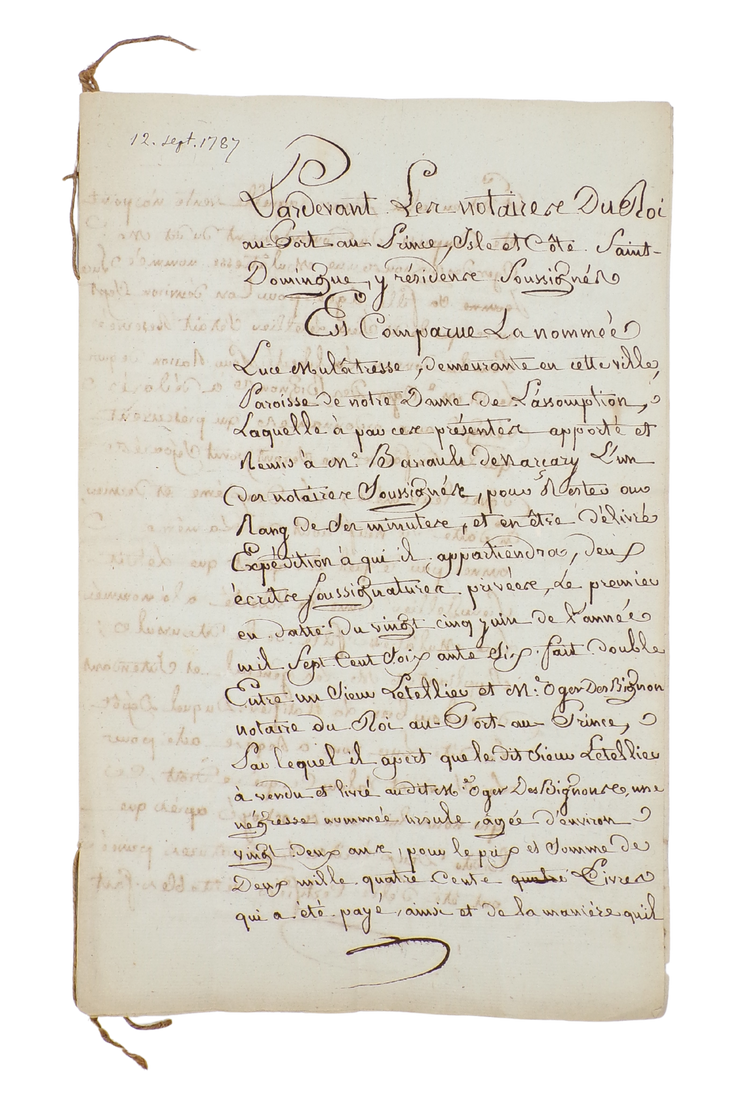 12. sept. 1787
Pardevant Les notaires Du Roi
au Port-au-Prince, Isle et Côte Saint-
Domingue, y résidens Soussignés
Est Comparue La nommée
Luce Mulâtresse, demeurante en cette ville,
Paroisse de notre Dame de L'assomption,
Laquelle à par ces présentes apporté et
Remis à Me. Barrault de Narçay L'un
des notaires Soussignés, pour Rester au
Rang de ses minutes, et en être délivré
Expédition à qui il appartiendra, deux
écrits Soussignatures privées, Le premier
en datte du vingt cinq juin de l'année
mil Sept Cent Soixante Six fait double
Entre un Sieur Letellier et Me. Oger Des Bignon
notaire du Roi au Port-au-Prince,
Par lequel il apert que le dit Sieur Letellier
à vendu et livré audit Me. Oger Des Bignons, une
négresse nommée ursule, agée d'environ
vingt deux ans, pour le prix et Somme de
Deux mille quatre Cents quatre Livres
qui a été payé, ainsi et de la manière quil